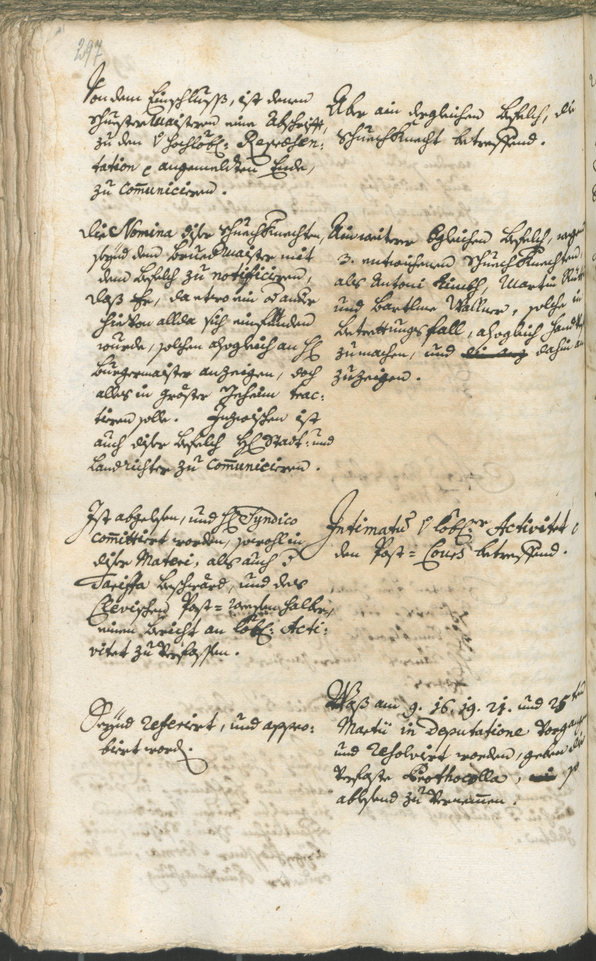 297
Von dem Einschluss, ist denen
Schuester Maistern eine Abschrifft,
zu dem Hochlöbl: Repraesen:
tation angemeldten Ende,
zu com̄uniciren.
Aber ain dergleichen Befelch, die
Schuech Knecht betreffend.
Die Nomina diser Schuech Knechten,
seynd dem Brueder Maister mit
dem Befelch zu notificiren,
dass Er, da etwo ein oder ander
hievon allda sich einfinden
wurde, solchen alsogleich an H:
Burgermaister anzeigen, doch
alles in gröster Geheim trac:
tiren solle. Inzwischen ist
auch diser Befelch H: Statt: und
Landrichter zu com̄uniciren.
Ain weiterer dergleichen Befelch, wegen
3. entwichenen Schuech Knechten,
als Antoni Martin
und Bartlme Wallner, solche in
Betrettungs fall, alsogleich
zu machen, und dahin an
zuzeigen.
Ist abgelesen, und H: Syndico
comittirt worden, sowohl in
diser Materi, als auch
Tariffa Beschwärd, und des
Clevischen Post-wesens halber,
einen Bericht an löbl: Acti:
vitet zu Verfassen.
Intimatum löbl: Activitet
den Post-Cours betreffend.
Seynd referirt, und appro:
birt word.
Wass am 9. 16. 19. 21. und 25ten
Martii in Deputatione Vorgangen
und resolvirt worden, geben die
Verfaste Prothocolla,
ablesend zu Vernemmen.